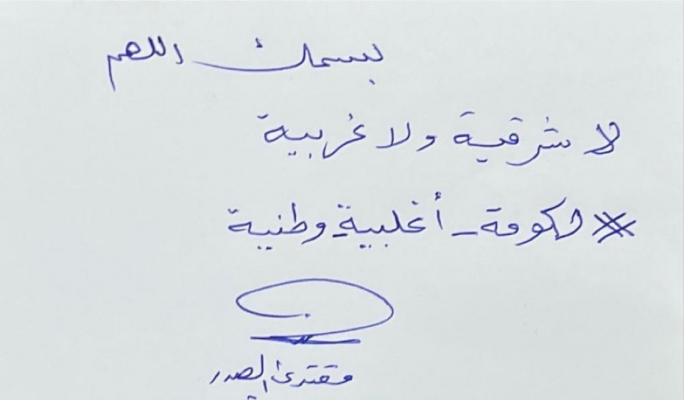 بسمك اللهم
لا شرقية ولا غربية
#حكومة_أغلبية_وطنية
مقتدى الصدر